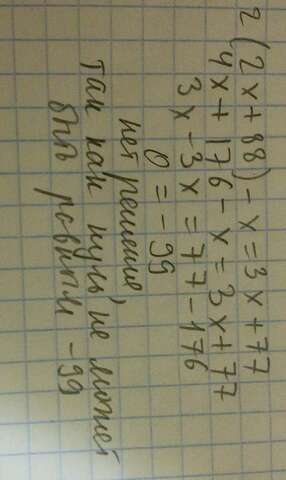 2(2x+88)-x=3x+77
4x+176-x=3x+77
3x-3x=77-176
0=-99
нет решение,
так как нуль не может
быть равным -99